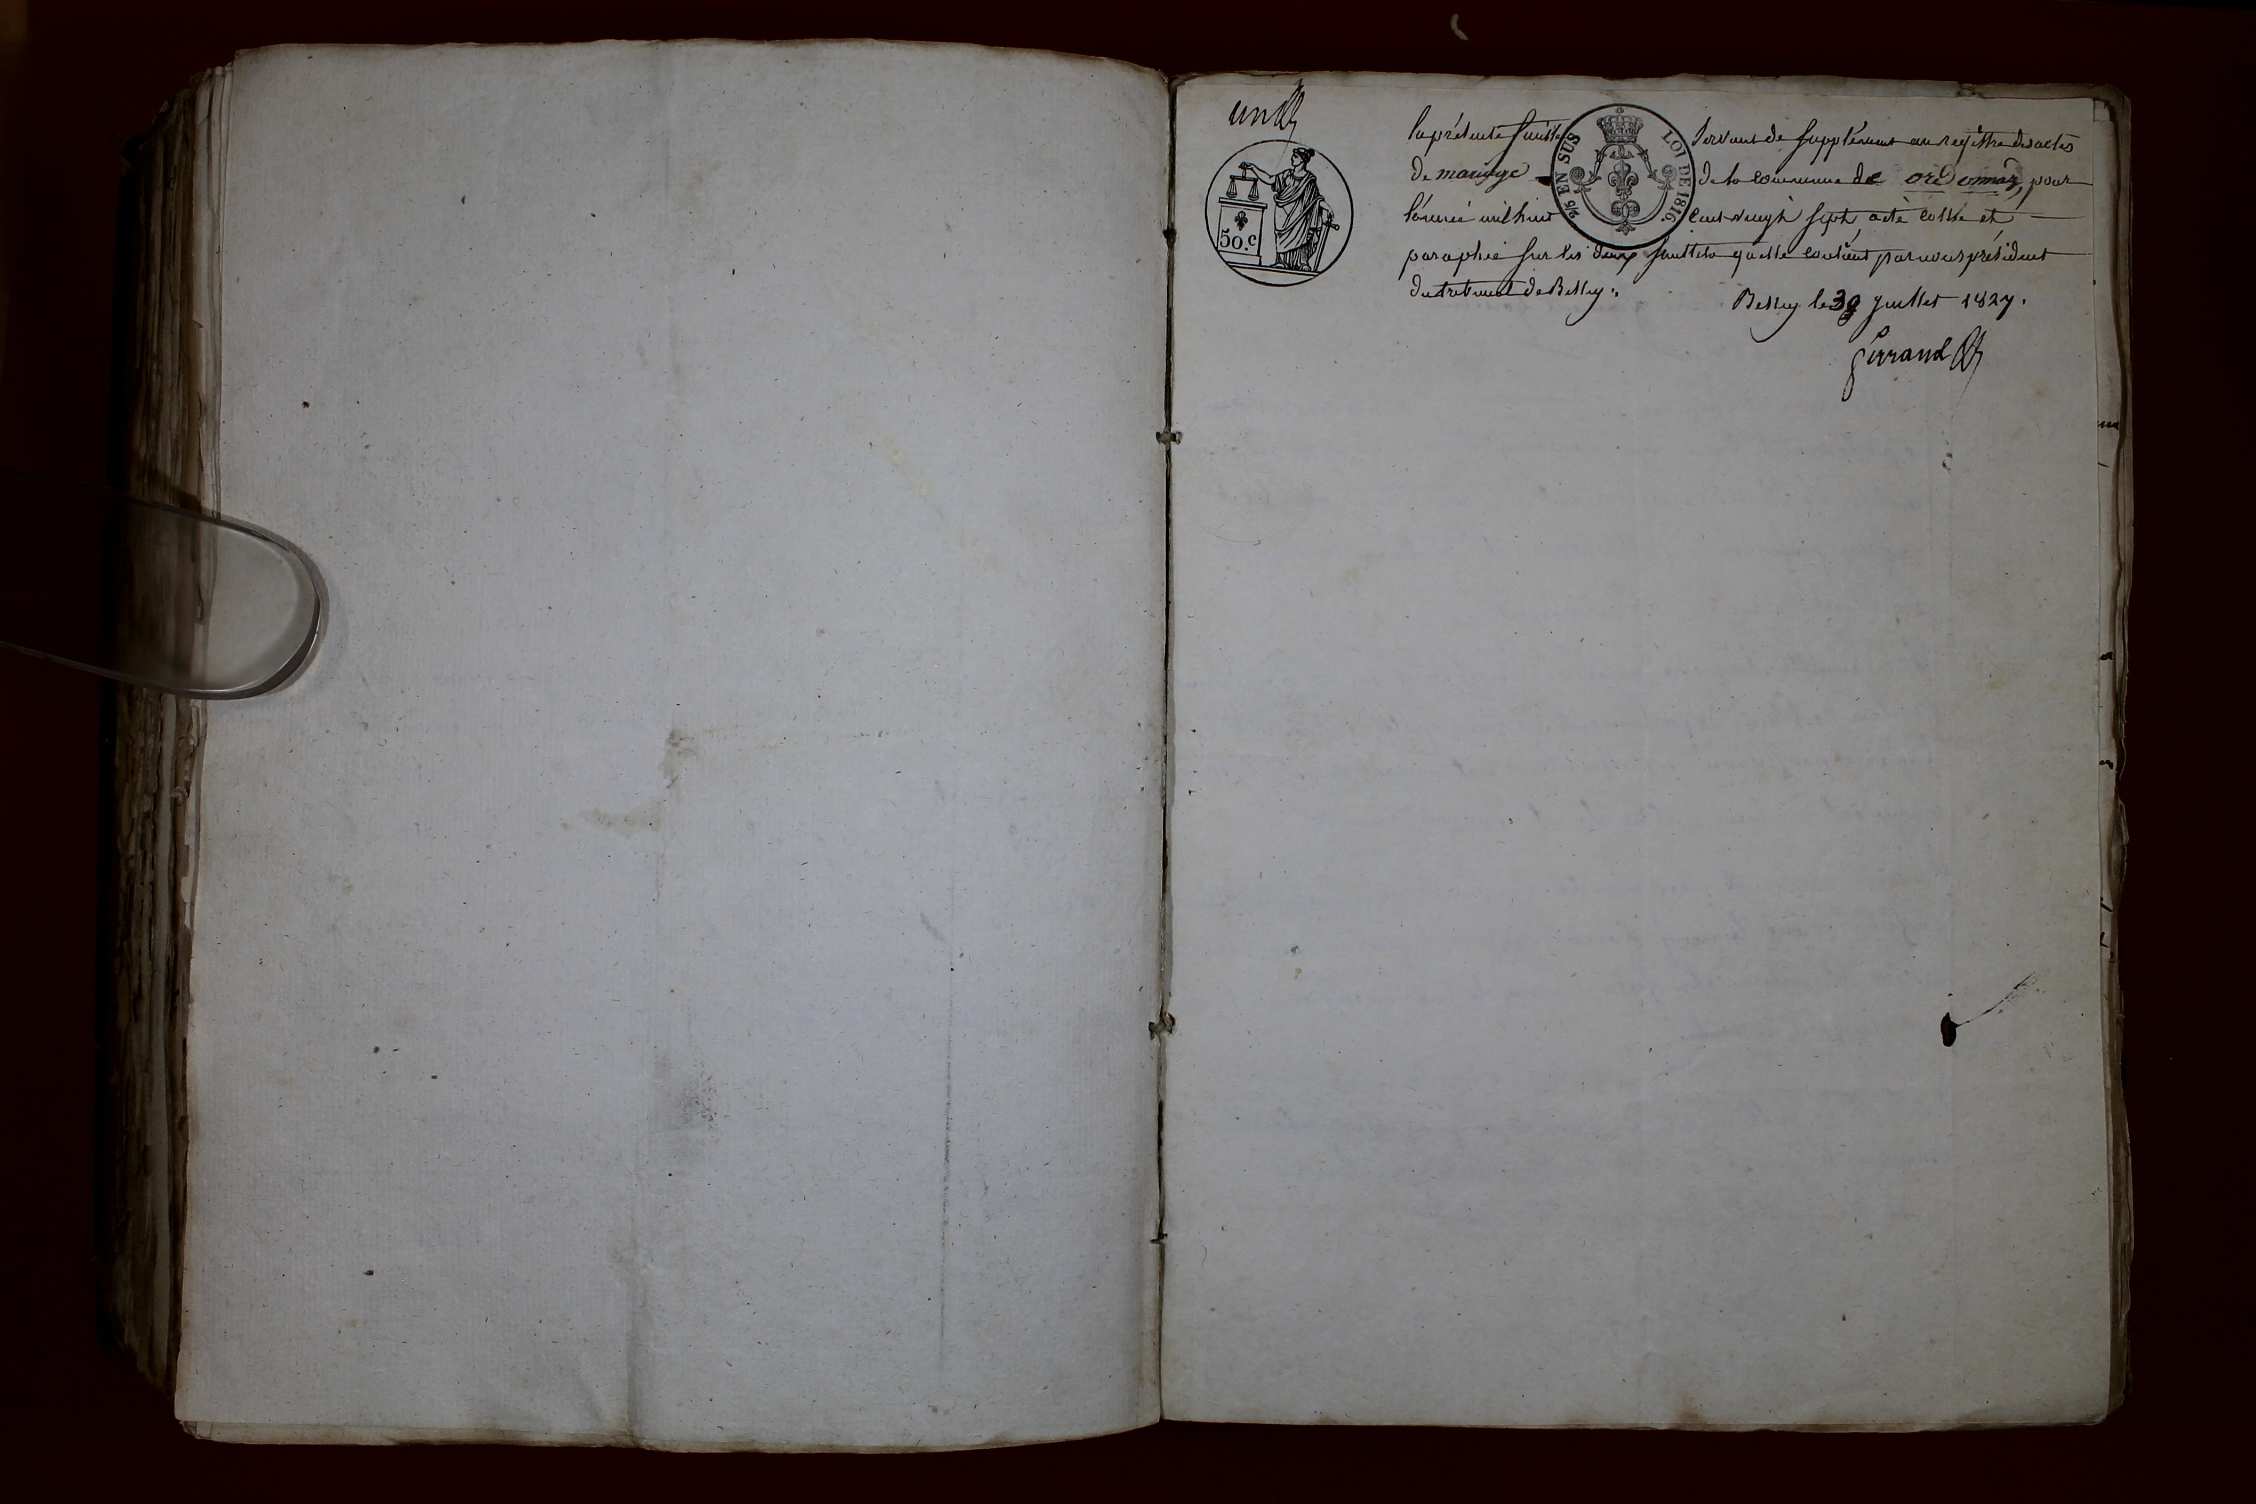 un
la présente feuille servant de supplément au registre des actes
de mariage de la commune de ordonnaz, pour
l'année mil huit cent vingt sept, a été cottée et
paraphée sur les deux feuillets qu'elle contient par nous président
du tribunal de Belley.
Belley le 30 Juillet 1827.
Girrand
50.c
2/5 EN SUS LOI DE 1816.